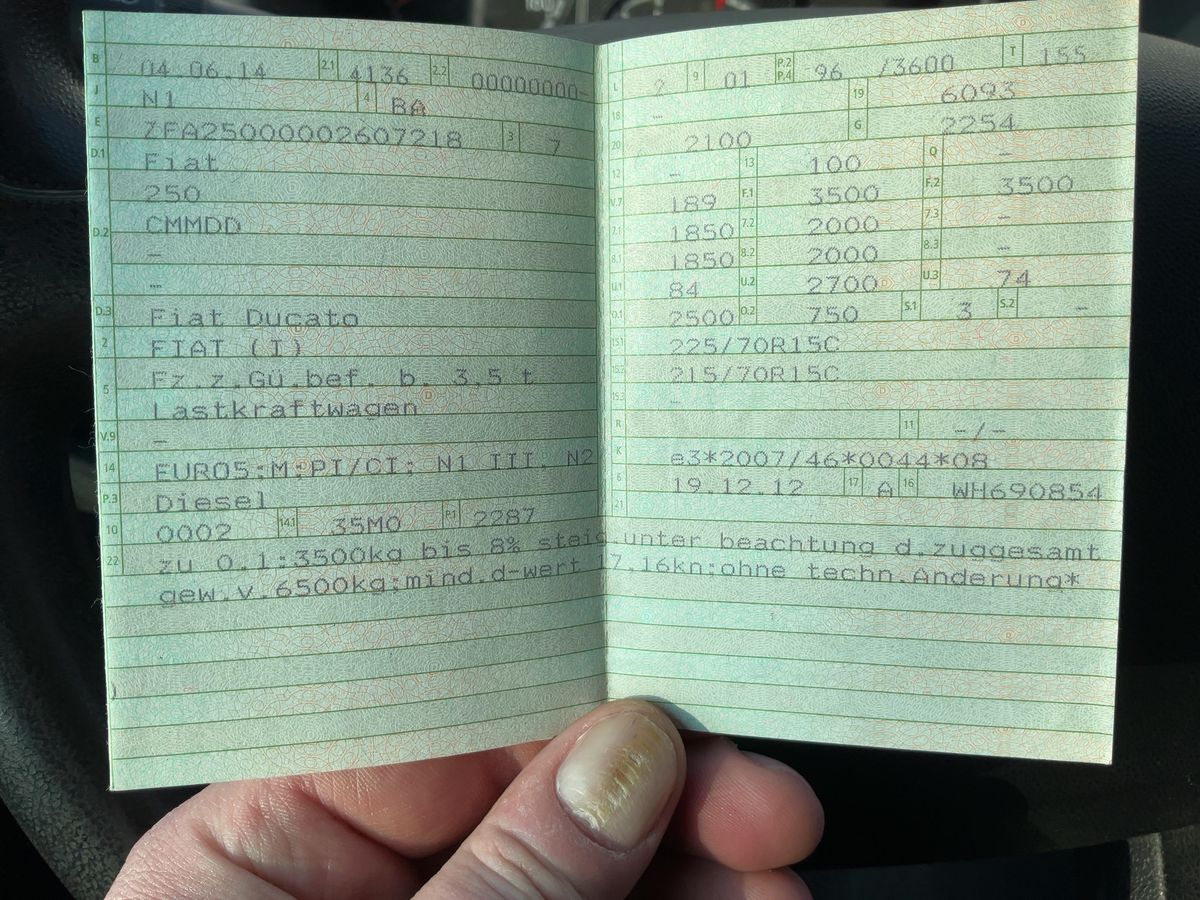 B 04.06.14 2.1 4136 2.2 00000000-
J N1 4 BA
E ZFA25000002607218 3 7
D.1 Fiat
250
D.2 CMMDD
-
-
D.3 Fiat Ducato
2 FIAT (I)
5 Fz.z.Gü.bef. b. 3,5 t
Lastkraftwagen
V.9 -
14 EURO5;M;PI/CI; N1 III, N2
P.3 Diesel
10 0002 14.1 35M0 P.1 2287
L 2 9 01 P.2 P.4 96 /3600 T 155
18 - 19 6093
20 2100 G 2254
12 - 13 100 Q -
V.7 189 F.1 3500 F.2 3500
7.1 1850 7.2 2000 7.3 -
8.1 1850 8.2 2000 8.3 -
U.1 84 U.2 2700 U.3 74
O.1 2500 O.2 750 S.1 3 S.2 -
15.1 225/70R15C
15.2 215/70R15C
15.3 -
R 11 -/-
K e3*2007/46*0044*08
6 19.12.12 17 A 16 WH690854
21
22 zu O.1:3500kg bis 8% steig.unter beachtung d.zuggesamt
gew.v.6500kg;mind.d-wert 17,16kn;ohne techn.Änderung*